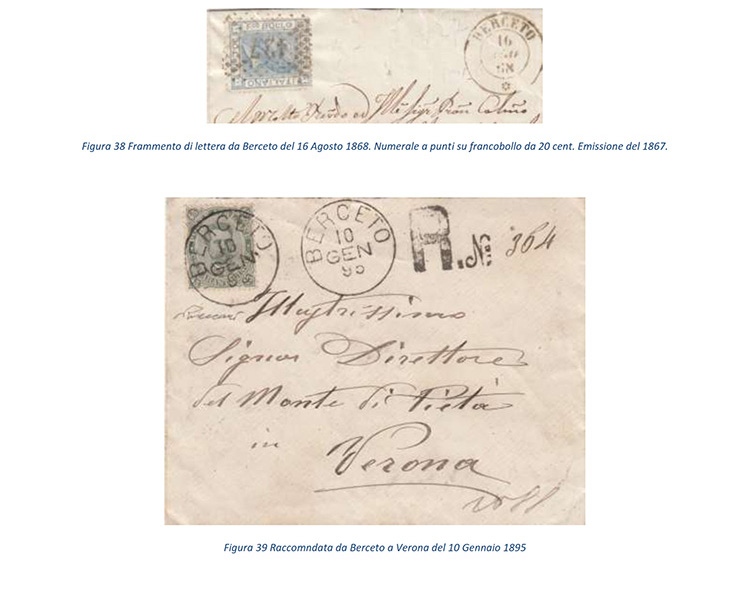 BERCETO
16
AGO
68
Figura 38 Frammento di lettera da Berceto del 16 Agosto 1868. Numerale a punti su francobollo da 20 cent. Emissione del 1867.
BERCETO
10
GEN
BERCETO
10
GEN
95
R. N. 364
Illustrissimo
Signor Direttore
del Monte di Pietà
in
Verona
Figura 39 Raccomndata da Berceto a Verona del 10 Gennaio 1895